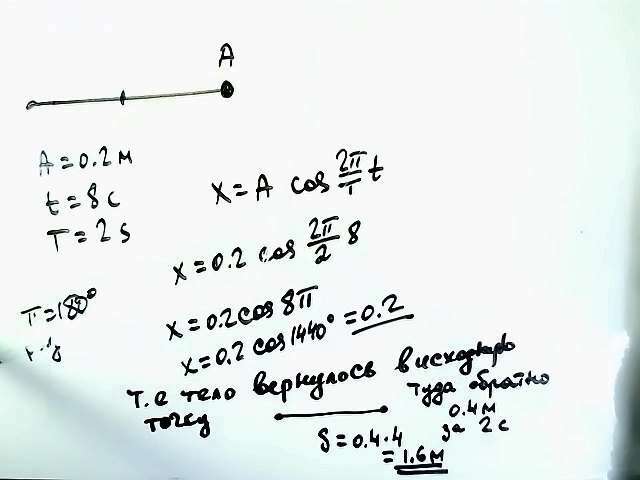 A
A = 0.2 м
t = 8 c
T = 2 s
X = A cos 2π/T t
X = 0.2 cos 2π/2 8
π = 180°
X = 0.2 cos 8π
X = 0.2 cos 1440° = 0.2
т.е тело вернулось в
точку
туда обратно
0.4 м
за 2 с
S = 0.4 · 4
= 1.6 м